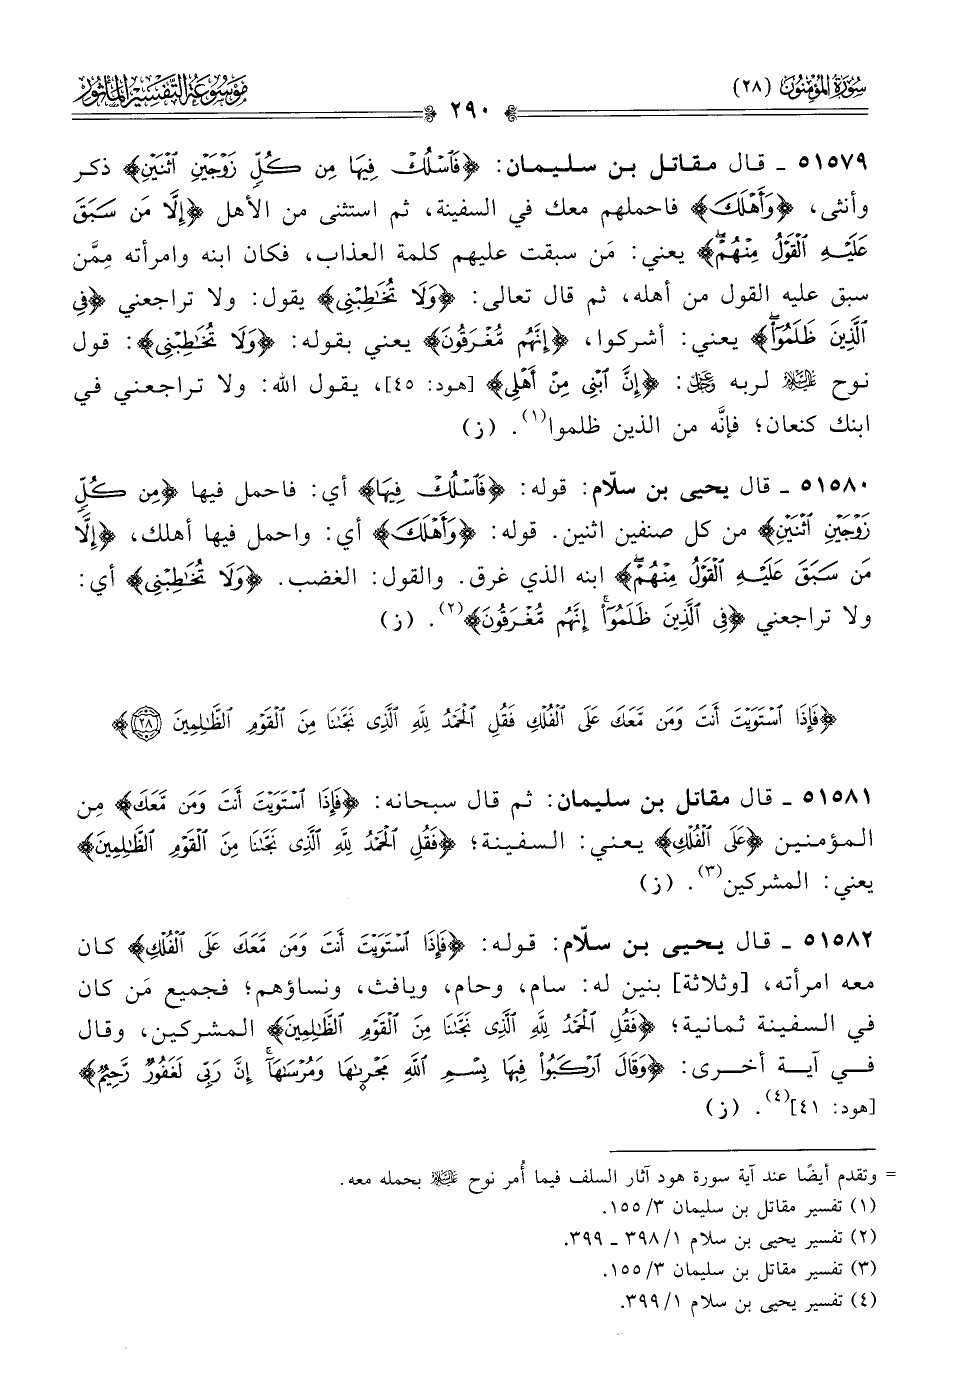 سُورَةُ المُؤْمِنُونَ (٢٨)
٢٩٠
مَوْسُوعَةُ التَّفْسِيرِ المَأْثُورِ
٥١٥٧٩ ـ قال مقاتل بن سليمان: ﴿فَٱسْلُكْ فِيهَا مِن كُلٍّ زَوْجَيْنِ ٱثْنَيْنِ﴾ ذكر
وأنثى، ﴿وَأَهْلَكَ﴾ فاحملهم معك في السفينة، ثم استثنى من الأهل ﴿إِلَّا مَن سَبَقَ
عَلَيْهِ ٱلْقَوْلُ مِنْهُمْۖ﴾ يعني: مَن سبقت عليهم كلمة العذاب، فكان ابنه وامرأته مِمَّن
سبق عليه القول من أهله، ثم قال تعالى: ﴿وَلَا تُخَٰطِبْنِى﴾ يقول: ولا تراجعني ﴿فِى
ٱلَّذِينَ ظَلَمُوٓا۟ۖ﴾ يعني: أشركوا، ﴿إِنَّهُم مُّغْرَقُونَ﴾ يعني بقوله: ﴿وَلَا تُخَٰطِبْنِى﴾: قول
نوح عليه السلام لربه عز وجل: ﴿إِنَّ ٱبْنِى مِنْ أَهْلِى﴾ [هود: ٤٥]، يقول الله: ولا تراجعني في
ابنك كنعان؛ فإنَّه من الذين ظلموا(١). (ز)
٥١٥٨٠ ـ قال يحيى بن سلّام: قوله: ﴿فَٱسْلُكْ فِيهَا﴾ أي: فاحمل فيها ﴿مِن كُلٍّ
زَوْجَيْنِ ٱثْنَيْنِ﴾ من كل صنفين اثنين. قوله: ﴿وَأَهْلَكَ﴾ أي: واحمل فيها أهلك، ﴿إِلَّا
مَن سَبَقَ عَلَيْهِ ٱلْقَوْلُ مِنْهُمْۖ﴾ ابنه الذي غرق. والقول: الغضب. ﴿وَلَا تُخَٰطِبْنِى﴾ أي:
ولا تراجعني ﴿فِى ٱلَّذِينَ ظَلَمُوٓا۟ۚ إِنَّهُم مُّغْرَقُونَ﴾(٢). (ز)
﴿فَإِذَا ٱسْتَوَيْتَ أَنتَ وَمَن مَّعَكَ عَلَى ٱلْفُلْكِ فَقُلِ ٱلْحَمْدُ لِلَّهِ ٱلَّذِى نَجَّىٰنَا مِنَ ٱلْقَوْمِ ٱلظَّٰلِمِينَ ٢٨﴾
٥١٥٨١ ـ قال مقاتل بن سليمان: ثم قال سبحانه: ﴿فَإِذَا ٱسْتَوَيْتَ أَنتَ وَمَن مَّعَكَ﴾ مِن
المؤمنين ﴿عَلَى ٱلْفُلْكِ﴾ يعني: السفينة؛ ﴿فَقُلِ ٱلْحَمْدُ لِلَّهِ ٱلَّذِى نَجَّىٰنَا مِنَ ٱلْقَوْمِ ٱلظَّٰلِمِينَ﴾
يعني: المشركين(٣). (ز)
٥١٥٨٢ ـ قال يحيى بن سلّام: قوله: ﴿فَإِذَا ٱسْتَوَيْتَ أَنتَ وَمَن مَّعَكَ عَلَى ٱلْفُلْكِ﴾ كان
معه امرأته، [وثلاثة] بنين له: سام، وحام، ويافث، ونساؤهم؛ فجميع مَن كان
في السفينة ثمانية؛ ﴿فَقُلِ ٱلْحَمْدُ لِلَّهِ ٱلَّذِى نَجَّىٰنَا مِنَ ٱلْقَوْمِ ٱلظَّٰلِمِينَ﴾ المشركين، وقال
في آية أخرى: ﴿وَقَالَ ٱرْكَبُوا۟ فِيهَا بِسْمِ ٱللَّهِ مَجْر۪ىٰهَا وَمُرْسَىٰهَآۚ إِنَّ رَبِّى لَغَفُورٌ رَّحِيمٌ﴾
[هود: ٤١](٤). (ز)
= وتقدم أيضًا عند آية سورة هود آثار السلف فيما أُمر نوح عليه السلام بحمله معه.
(١) تفسير مقاتل بن سليمان ٣/ ١٥٥.
(٢) تفسير يحيى بن سلام ١/ ٣٩٨ ـ ٣٩٩.
(٣) تفسير مقاتل بن سليمان ٣/ ١٥٥.
(٤) تفسير يحيى بن سلام ١/ ٣٩٩.